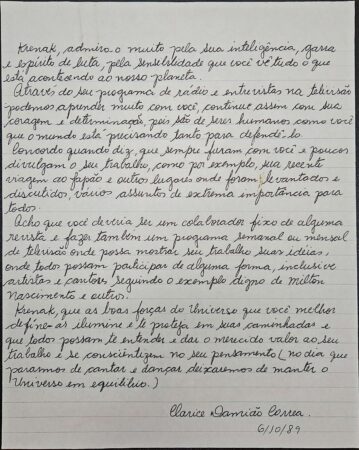 Krenak, admiro-o muito pela sua inteligência, garra
e espírito de luta, pela sensibilidade que você vê tudo o que
está acontecendo ao nosso planeta.
Através do seu programa de rádio e entrevistas na televisão
podemos aprender muito com você, continue assim com sua
coragem e determinação, pois são de seres humanos como você
que o mundo está precisando tanto para defendê-lo
Concordo quando diz, que sempre furam com você e poucos
divulgam o seu trabalho, como por exemplo, sua recente
viagem ao Japão e outros lugares onde foram levantados e
discutidos, vários assuntos de extrema importância para
todos.
Acho que você deveria ser um colaborador fixo de alguma
revista e fazer também um programa semanal ou mensal
de televisão onde possa mostrar seu trabalho suas idéias,
onde todos possam participar de alguma forma, inclusive
artistas e cantores, seguindo o exemplo digno de Milton
Nascimento e outros.
Krenak, que as boas forças do Universo que você melhor
define-as ilumine e te proteja em suas caminhadas e
que todos possam te entender e dar o merecido valor ao seu
trabalho e se conscientizem no seu pensamento (no dia que
pararmos de cantar e dançar deixaremos de manter o
Universo em equilíbrio.)
Clarice Damião Correa.
6/10/89